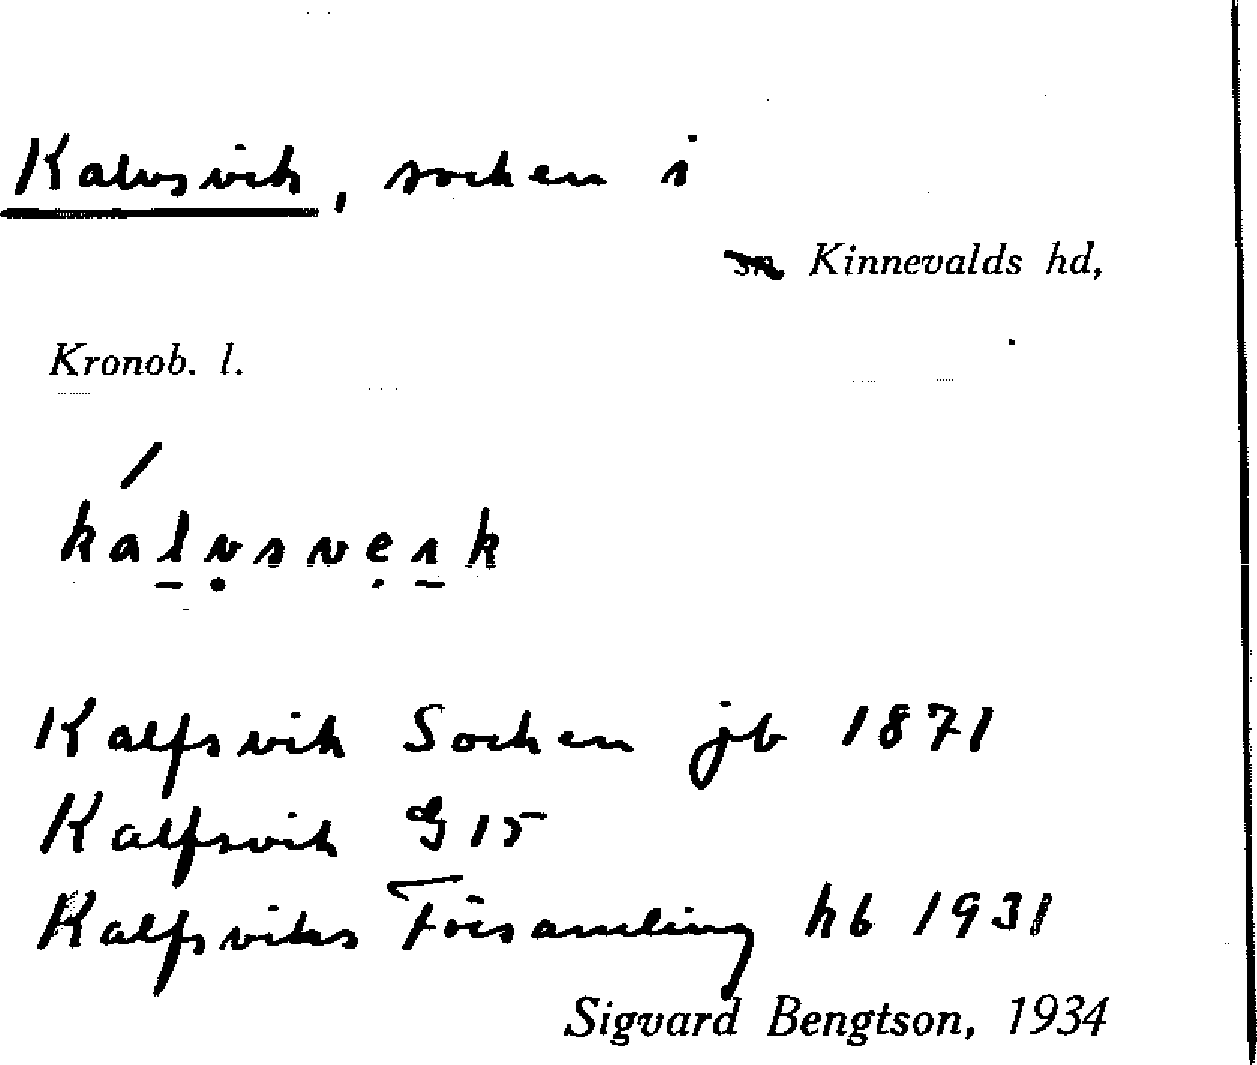 Kalvsvik, socken i
sn Kinnevalds hd,
Kronob. l.
kalvsvesk
Kalfsvik Socken jb 1871
Kalfsvik G 15
Kalfsviks Församling hb 1931
Sigvard Bengtson, 1934